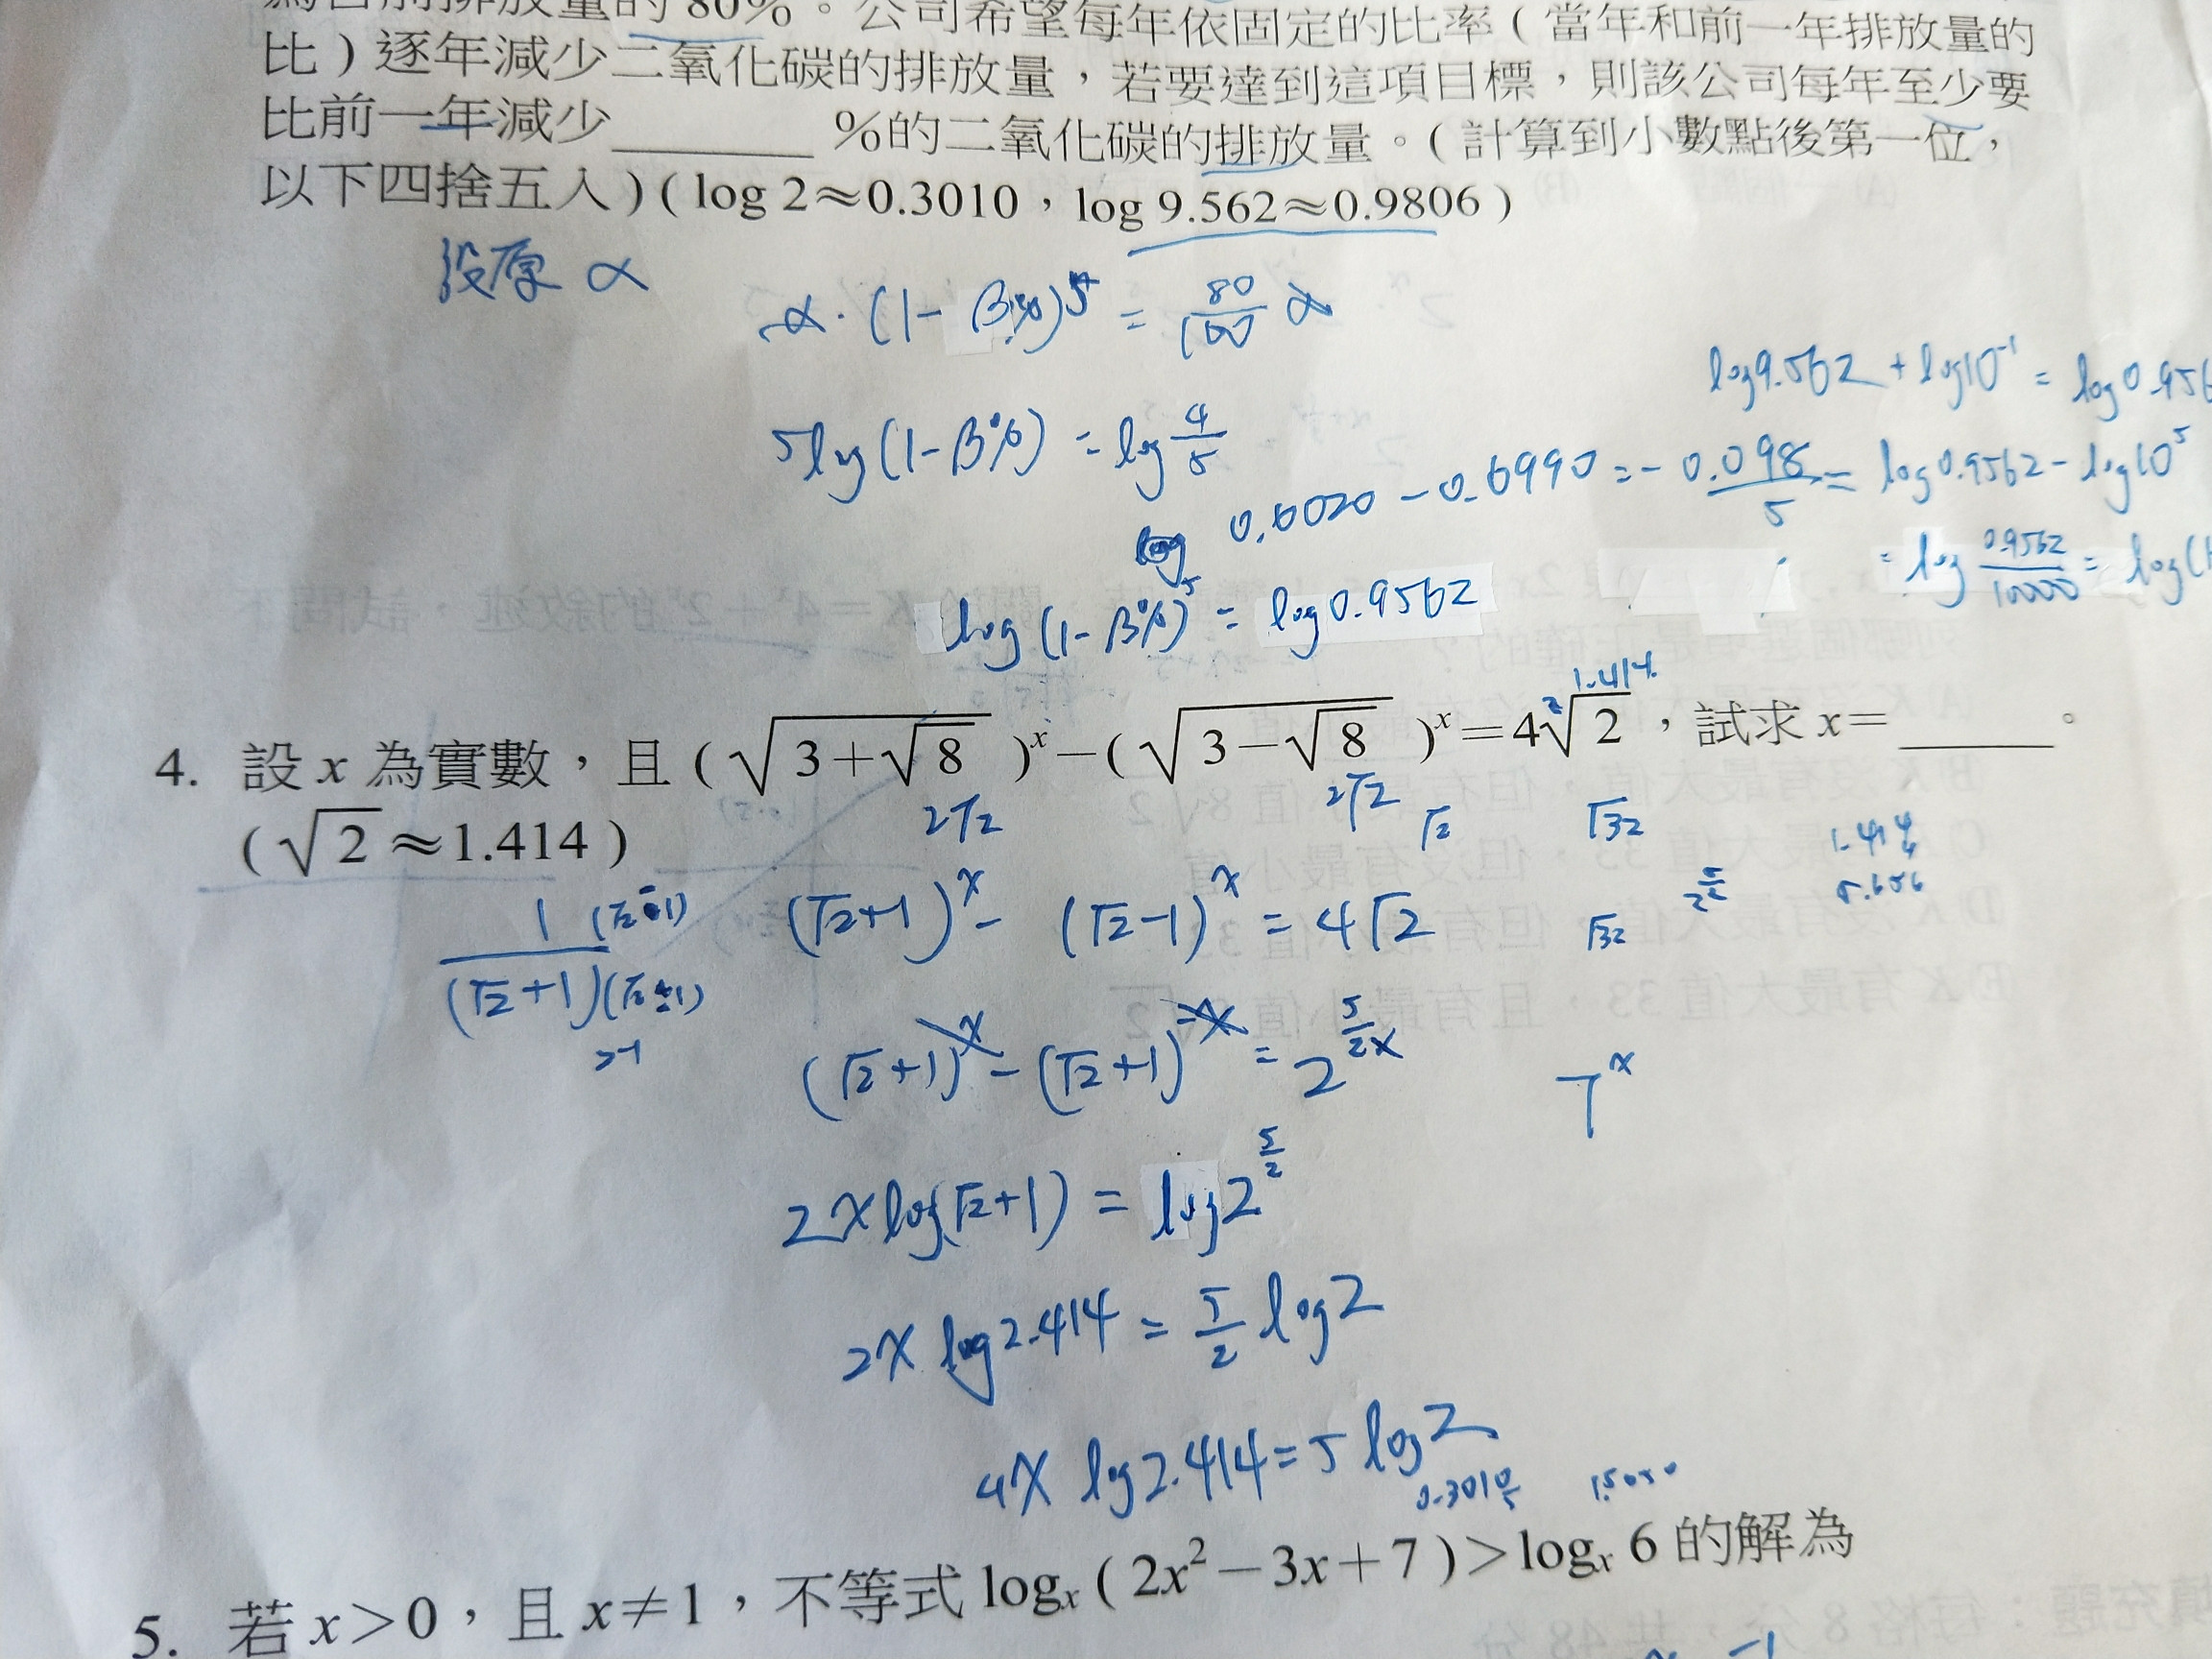 為目前排放量的 80%。公司希望每年依固定的比率(當年和前一年排放量的
比)逐年減少二氧化碳的排放量,若要達到這項目標,則該公司每年至少要
比前一年減少______%的二氧化碳的排放量。(計算到小數點後第一位,
以下四捨五入)(log 2≈0.3010,log 9.562≈0.9806)
設原 α
α·(1-β%)⁵ = 80/100 α
log9.562 + log10⁻¹ = log0.956
5log(1-β%) = log 4/5
0.6020 - 0.6990 = - 0.098/5 = log0.9562 - log10⁵
= log 0.9562/10000 = log(1
log(1-β%)⁵ = log0.9562
1.414
4. 設 x 為實數,且(√(3+√8))ˣ-(√(3-√8))ˣ=4√2,試求 x=______。
2√2 2√2 √2 √32
(√2≈1.414)
1.414
4
5.656
1(√2-1)/(√2+1)(√2-1)
2-1
(√2+1)ˣ - (√2-1)ˣ = 4√2
√32
2^(5/2)
(√2+1)ˣ - (√2+1)⁻ˣ = 2^(5/2 x)
7ˣ
2x log(√2+1) = log2^(5/2)
2x log2.414 = 5/2 log2
4x log2.414 = 5 log2
0.3010 5 1.5050
5. 若 x>0,且 x≠1,不等式 logₓ(2x²-3x+7)>logₓ 6 的解為